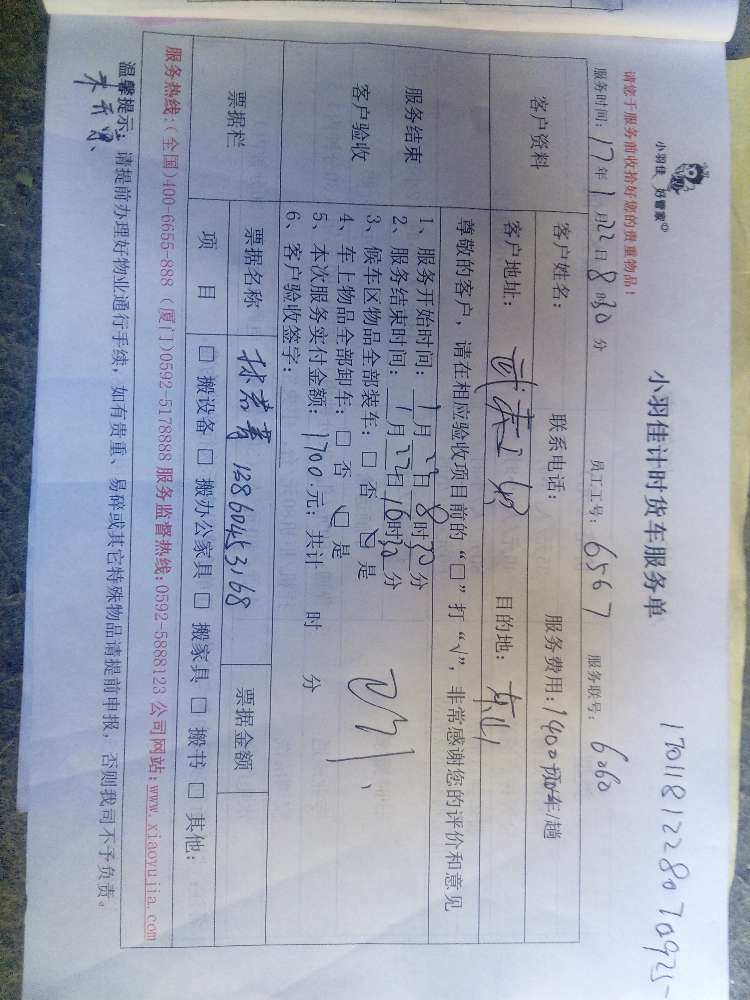 1701181228070925
小羽佳 好管家©
小羽佳计时货车服务单
请您于服务前收拾好您的贵重物品!
服务时间: 17年1月22日8时30分 员工工号: 6567 服务联号: 6060
客户资料
客户姓名: 联系电话: 服务费用: 1400 车/趟
客户地址: 目的地:
服务结束
客户验收
尊敬的客户,请在相应验收项目前的“□”打“√”,非常感谢您的评价和意见
1、服务开始时间: 1月22日8时30分
2、服务结束时间: 1月22日16时30分
3、候车区物品全部装车: □ 否 ☑ 是
4、车上物品全部卸车: □ 否 ☑ 是
5、本次服务实付金额: 1700.元; 共计 时 分
6、客户验收签字:
票据栏
票据名称 13860453168 票据金额
项 目 □ 搬设备 □ 搬办公家具 □ 搬家具 □ 搬书 □ 其他:
服务热线:(全国)400-6655-888 (厦门)0592-5178888 服务监督热线:0592-5888123 公司网站:www.xiaoyujia.com
温馨提示: 请提前办理好物业通行手续,如有贵重、易碎或其它特殊物品请提前申报,否则我司不予负责。